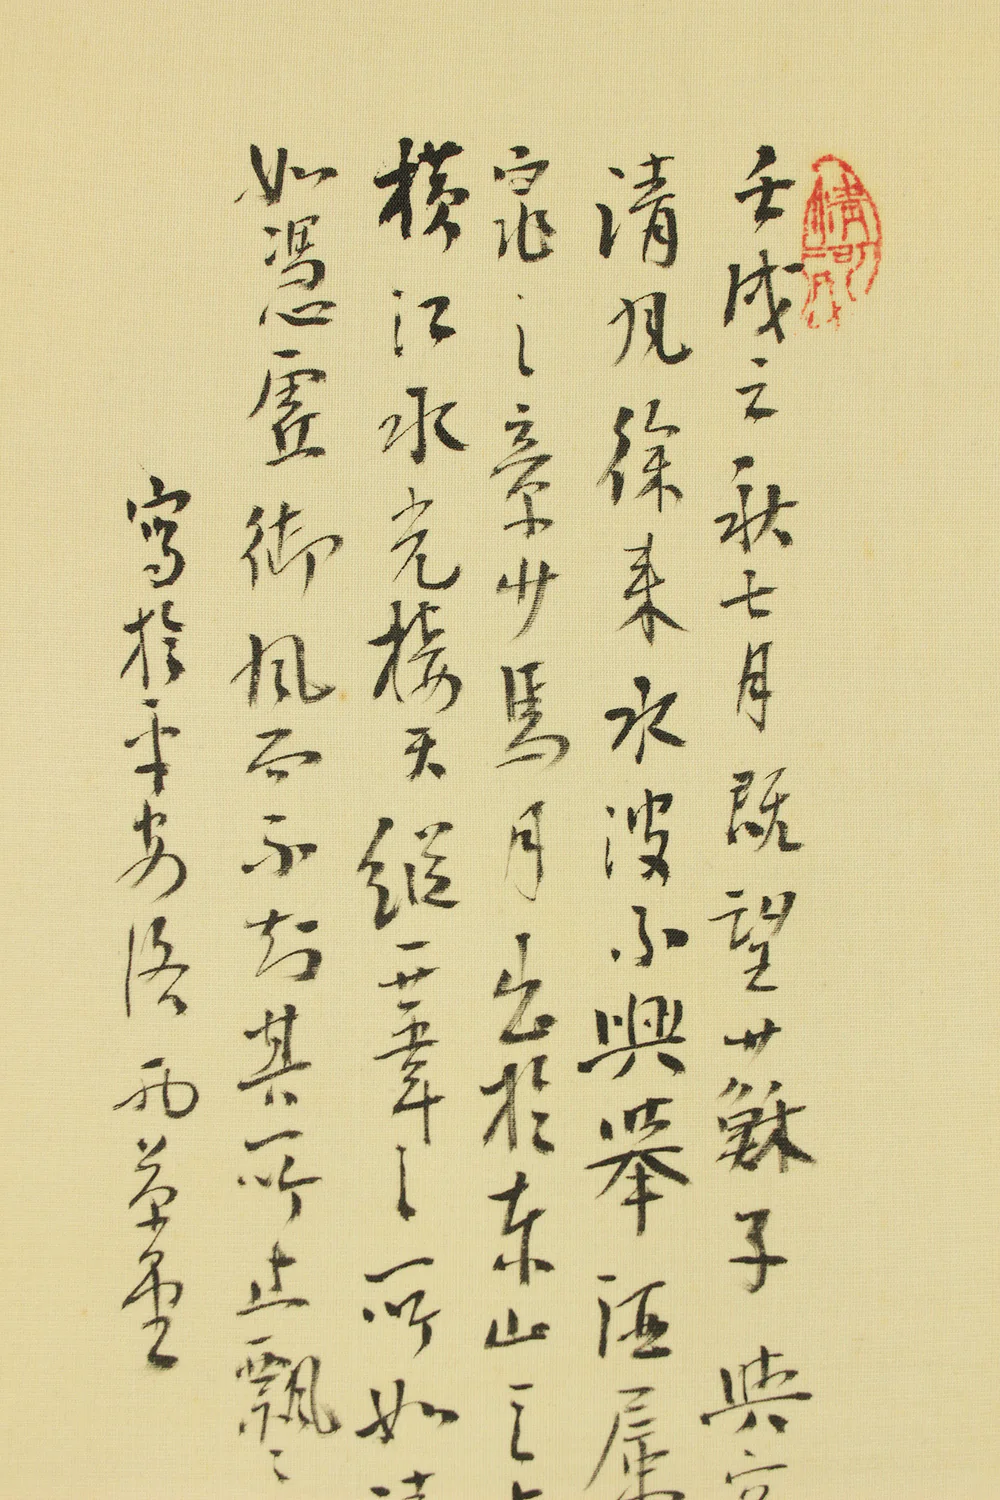 壬戌之秋七月既望蘇子與客
清風徐來水波不興舉酒屬
窕之章少焉月出於東山之
橫江水光接天縱一葦之所如
如憑虛御風而不知其所止飄々
寫於平安洛西草堂